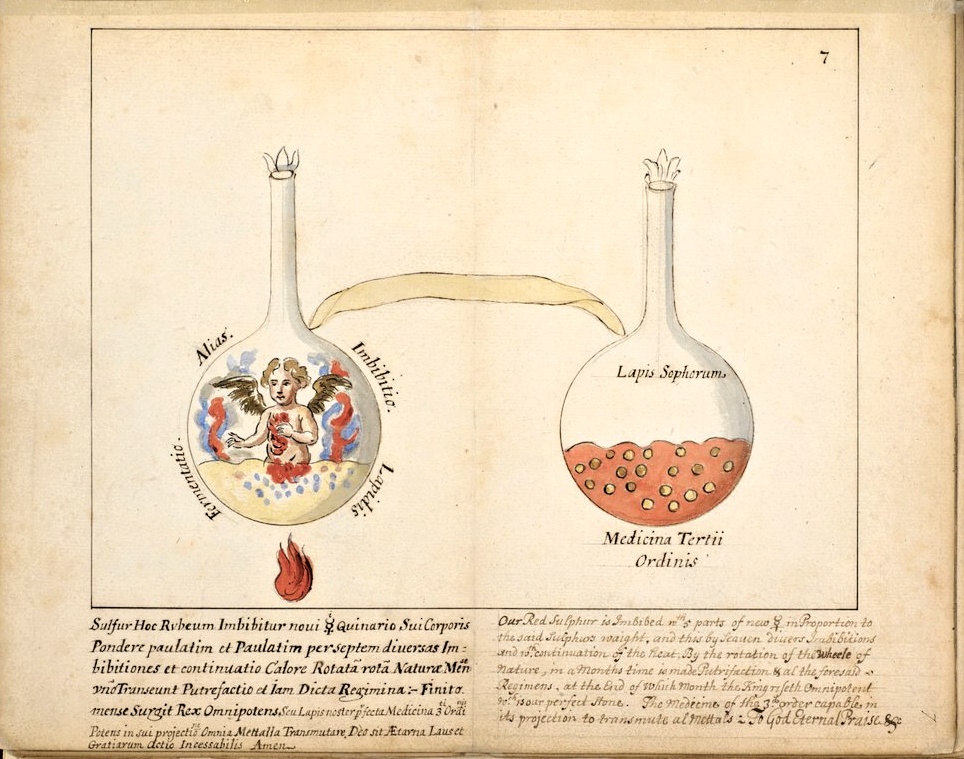 7
Alias.
Imbibitio.
Fermentatio.
Lapidis
Lapis Sophorum.
Medicina Tertii
Ordinis
Sulfur Hoc Rvbeum Imbibitur noui ☿ Quinario Sui Corporis
Pondere paulatim et Paulatim per septem diversas Im=
bibitiones et continuatio Calore Rotatã rotã Naturæ
Transeunt Putrefactio et Iam Dicta Regimina:- Finito.
mense Surgit Rex Omnipotens, Seu Lapis noster Medicina
Potens in sui Omnia Mettalla Transmutare, Deo sit Ætarna Laus et
Gratiarum Actio Incessabilis Amen
Our Red Sulphur is Imbibed parts of new ☿ in Proportion to
the said Sulphurs waight, and this by Seauen divers Imbibitions
and continuation of the heat. By the rotation of the Wheele of
Nature, in a Months time is made Putrifaction & al the foresaid
Regimens, at the End of which Month the King riseth Omnipotent
is our perfect Stone. The Medecine of the 3d order capable in
its projection to transmute al Mettals: To God Eternal Praise &c